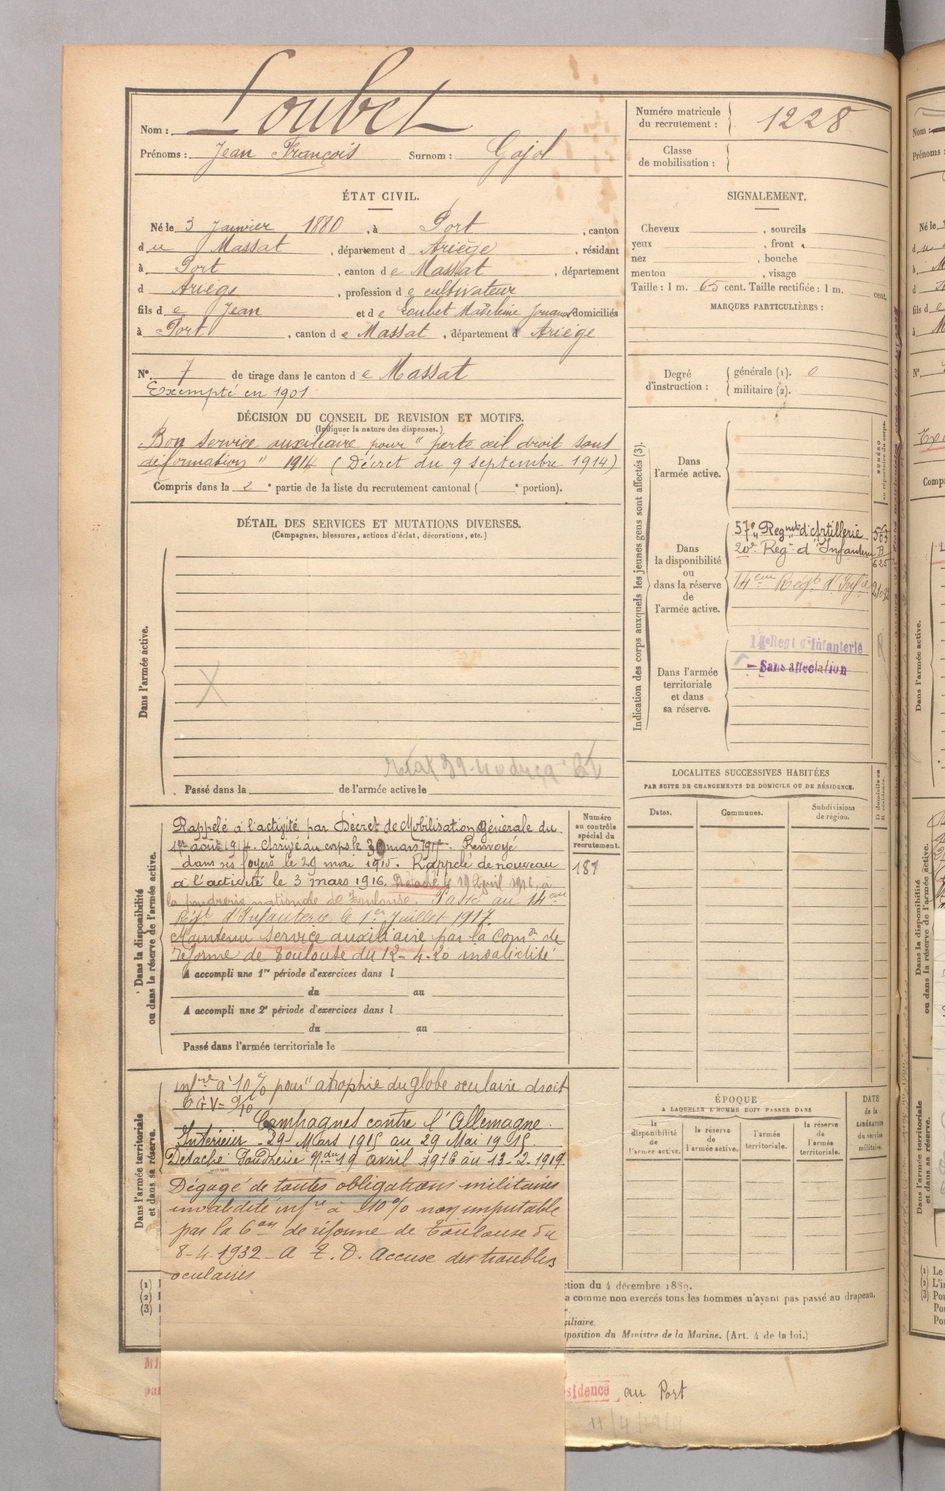 Nom : Loubet
Prénoms : Jean François Surnom : Gajol
Numéro matricule du recrutement : 1228
Classe de mobilisation :
ÉTAT CIVIL.
Né le 3 Janvier 1880, à Port, canton
du Massat, département d Ariège, résidant
à Port, canton de Massat, département
d Ariège, profession de cultivateur
fils de Jean et de Loubet Madeleine domiciliés
à Port, canton de Massat, département d Ariège
N° 7 de tirage dans le canton de Massat
Exempté en 1901
DÉCISION DU CONSEIL DE REVISION ET MOTIFS.
(Indiquer la nature des dispenses.)
Bon service auxiliaire pour " perte œil droit sans
déformation " 1914 (Décret du 9 septembre 1914)
Compris dans la 2e partie de la liste du recrutement cantonal ( e portion).
SIGNALEMENT.
Cheveux , sourcils
yeux , front
nez , bouche
menton , visage
Taille : 1 m. 65 cent. Taille rectifiée : 1 m. cent.
MARQUES PARTICULIÈRES :
Degré d'instruction : générale (1). 0
militaire (2).
DÉTAIL DES SERVICES ET MUTATIONS DIVERSES.
(Campagnes, blessures, actions d'éclat, décorations, etc.)
Dans l'armée active.
Passé dans la de l'armée active le
Indication des corps auxquels les jeunes gens sont affectés (3).
Dans l'armée active.
Dans la disponibilité ou dans la réserve de l'armée active.
57e Regmt d'Artillerie
20e Regt d'Infanterie
14eme Regt d'Infie
Dans l'armée territoriale et dans sa réserve.
14e Regt d'Infanterie
Sans affectation
Dans la disponibilité ou dans la réserve de l'armée active.
Rappelé à l'activité par Décret de Mobilisation Générale du
1er août 1914. Arrivé au corps le 30 mars 1915. Renvoyé
dans ses foyers le 29 mai 1915. Rappelé de nouveau
à l'activité le 3 mars 1916. Détaché le 19 Avril 1916 à
la poudrerie nationale de Toulouse. Passé au 14eme
Regt d'Infanterie le 1er Juillet 1917.
Maintenu service auxiliaire par la Comon de
réforme de Toulouse du 12-4-20 invalidité
Numéro au contrôle spécial du recrutement.
187
A accompli une 1re période d'exercices dans l
du au
A accompli une 2e période d'exercices dans l
du au
Passé dans l'armée territoriale le
LOCALITES SUCCESSIVES HABITÉES
PAR SUITE DE CHANGEMENTS DE DOMICILE OU DE RÉSIDENCE.
Dates. Communes. Subdivisions de région.
Dans l'armée territoriale et dans sa réserve.
infre à 10% pour " atrophie du globe oculaire droit
Campagnes contre l'Allemagne.
Intérieur - 29 Mars 1915 au 29 Mai 1915
Détaché Poudrerie Nale 19 avril 1916 au 13-2-1919
Dégagé de toutes obligations militaires
invalidité infre à 10% non imputable
par la Con de réforme de Toulouse du
8-4-1932 A. E. D. Accuse des troubles
oculaires
ÉPOQUE
A LAQUELLE L'HOMME DOIT PASSER DANS
la disponibilité de l'armée active.
la réserve de l'armée active.
l'armée territoriale.
la réserve de l'armée territoriale.
DATE de la LIBÉRATION du service militaire.
(1)
(2)
(3)
ction du 4 décembre 1889.
a comme non exercés tous les hommes n'ayant pas passé au drapeau.
xiliaire.
sposition du Ministre de la Marine. (Art. 4 de la loi.)
sidence au Port